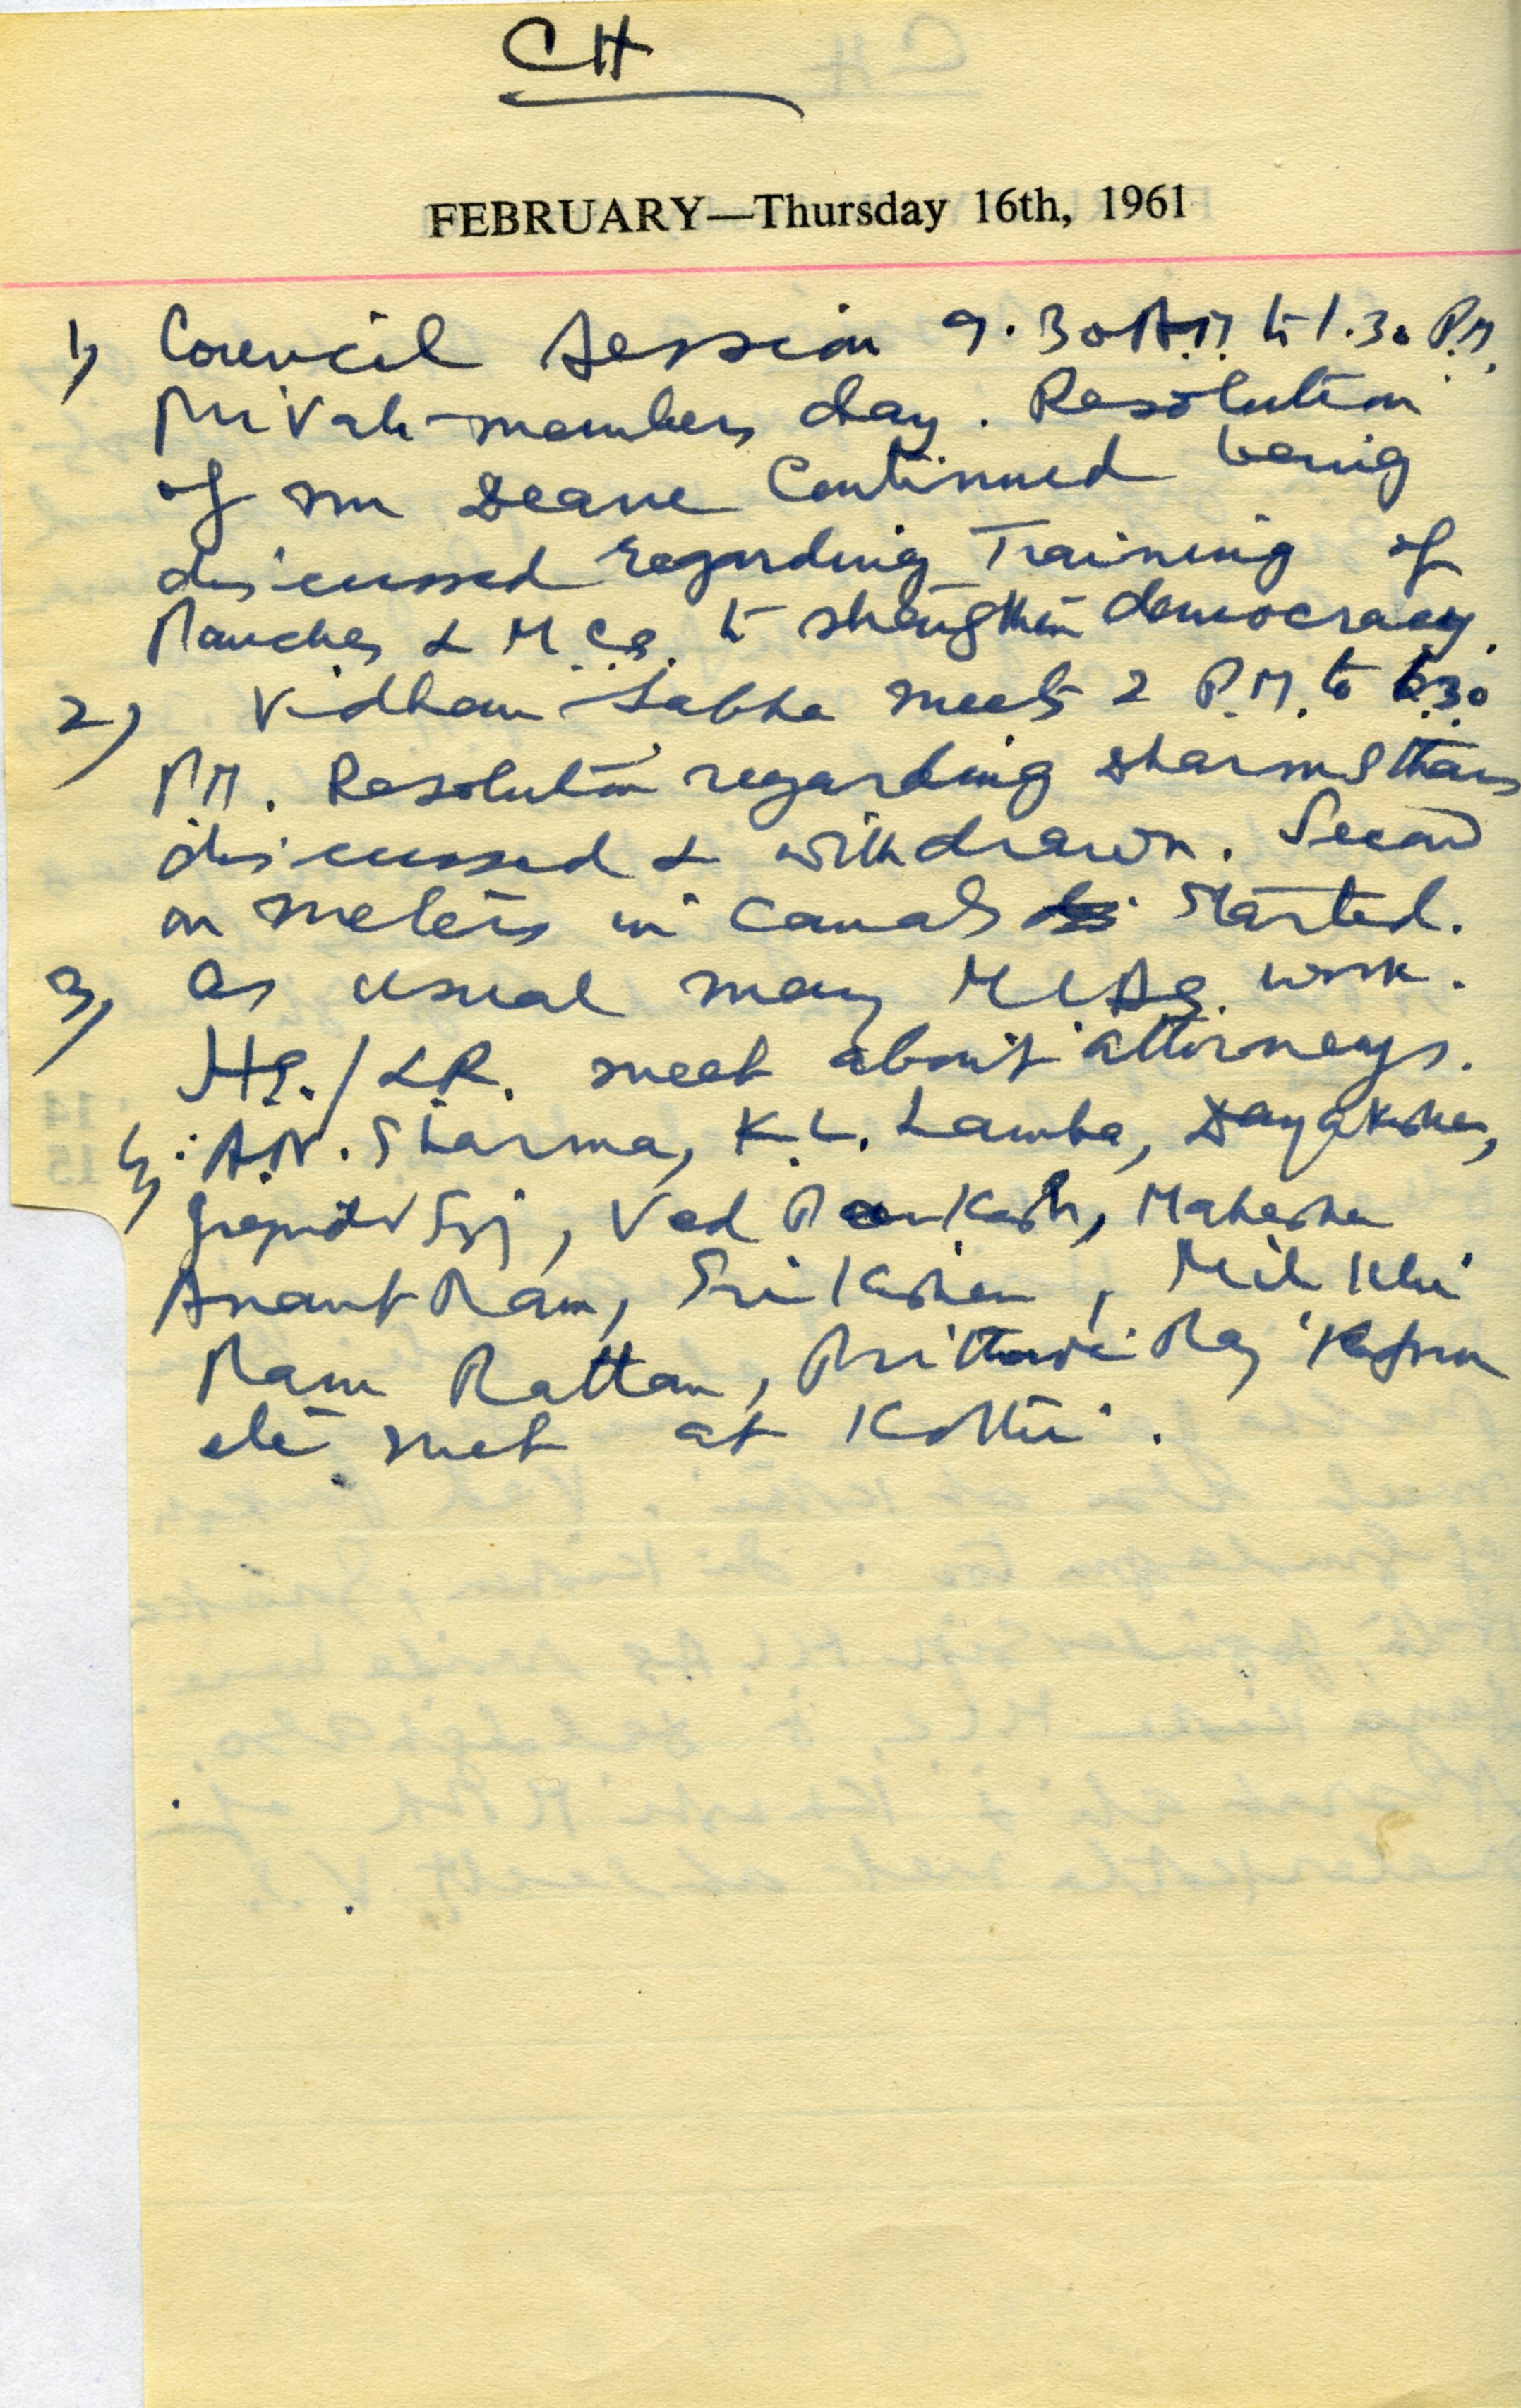 CH
FEBRUARY—Thursday 16th, 1961
1) Council Session 9.30 A.M. to 1.30 P.M.
Private members day. Resolution
of Mr Deane Continued being
discussed regarding Training of
Panches & M.Cs. to strengthen democracy.
2) Vidhan Sabha meets 2 P.M. to 6.30
P.M. Resolution regarding Dharmsthans
discussed & withdrawn. Second
on meters in canals started.
3) As usual many MLAs. work.
HS./LR. meet about attorneys.
4) A.N. Sharma, K.L. Lamba, Dayakishen,
Ved Parkash, Mahashe
Anant Ram, Sri Kishen, Milkhi
Ram Rattan, Prithvi Raj Kapur
etc met at Kothi.